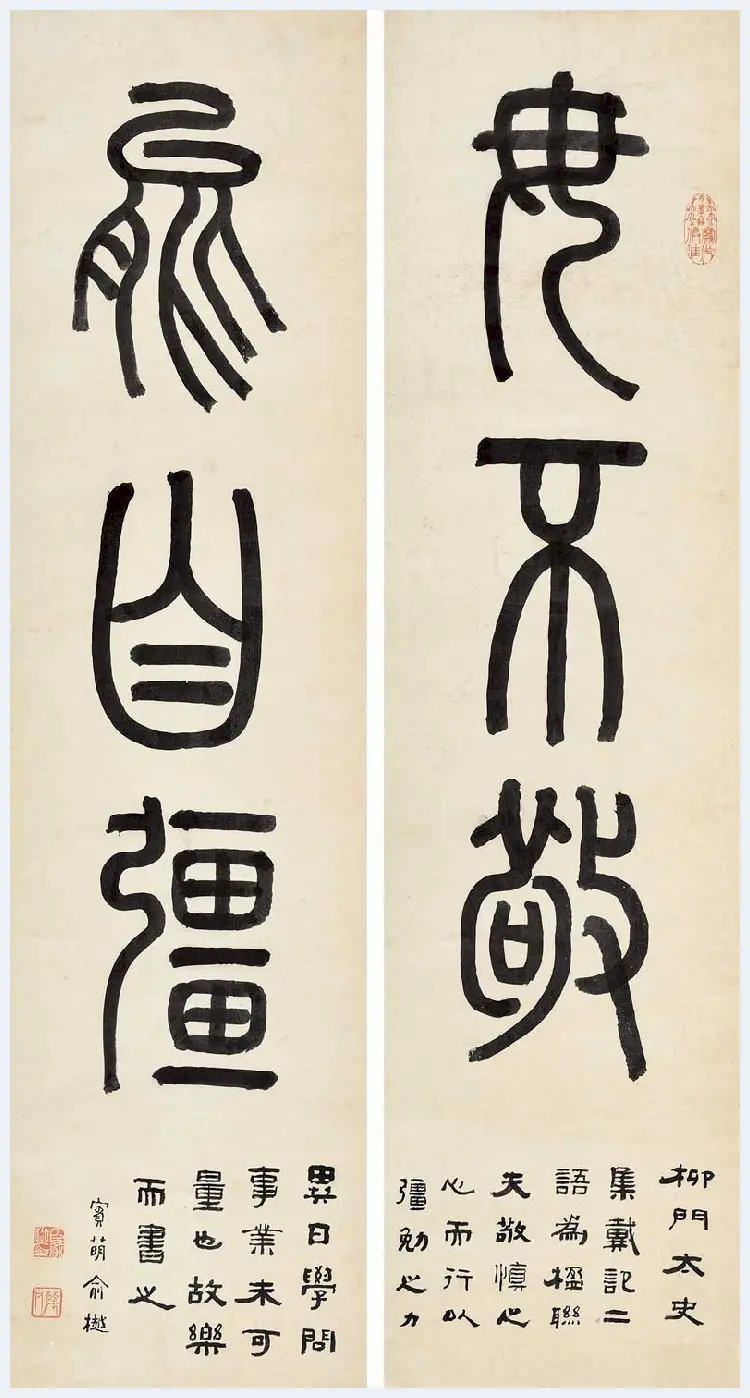 毋不敬
自彊
柳門太史
集戴記二
語為楹聯
夫敬慎之
心而行以
彊勉之力
異日學問
事業未可
量也故樂
而書之
賓萌俞樾